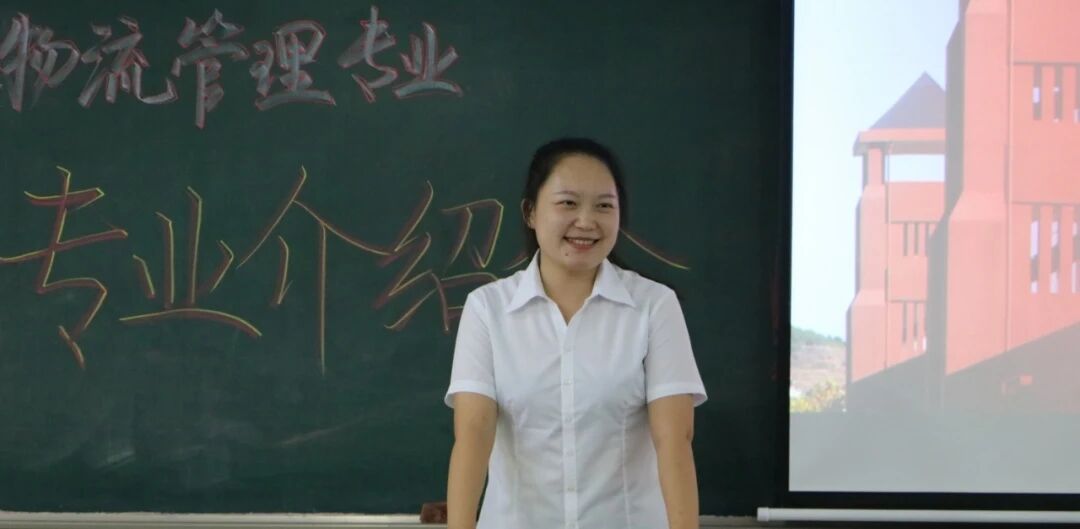 物流管理专业
专业介绍会